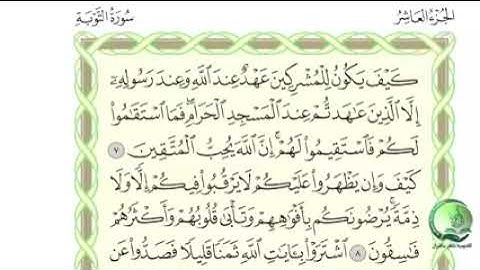 الجزء العاشر
سورة التوبة
كَيْفَ يَكُونُ لِلْمُشْرِكِينَ عَهْدٌ عِندَ اللَّهِ وَعِندَ رَسُولِهِ
إِلَّا الَّذِينَ عَاهَدتُّمْ عِندَ الْمَسْجِدِ الْحَرَامِ فَمَا اسْتَقَامُوا
لَكُمْ فَاسْتَقِيمُوا لَهُمْ إِنَّ اللَّهَ يُحِبُّ الْمُتَّقِينَ ٧
كَيْفَ وَإِن يَظْهَرُوا عَلَيْكُمْ لَا يَرْقُبُوا فِيكُمْ إِلًّا وَلَا
ذِمَّةً يُرْضُونَكُم بِأَفْوَاهِهِمْ وَتَأْبَى قُلُوبُهُمْ وَأَكْثَرُهُمْ
فَاسِقُونَ ٨ اشْتَرَوْا بِـَٔايَاتِ اللَّهِ ثَمَنًا قَلِيلًا فَصَدُّوا عَن